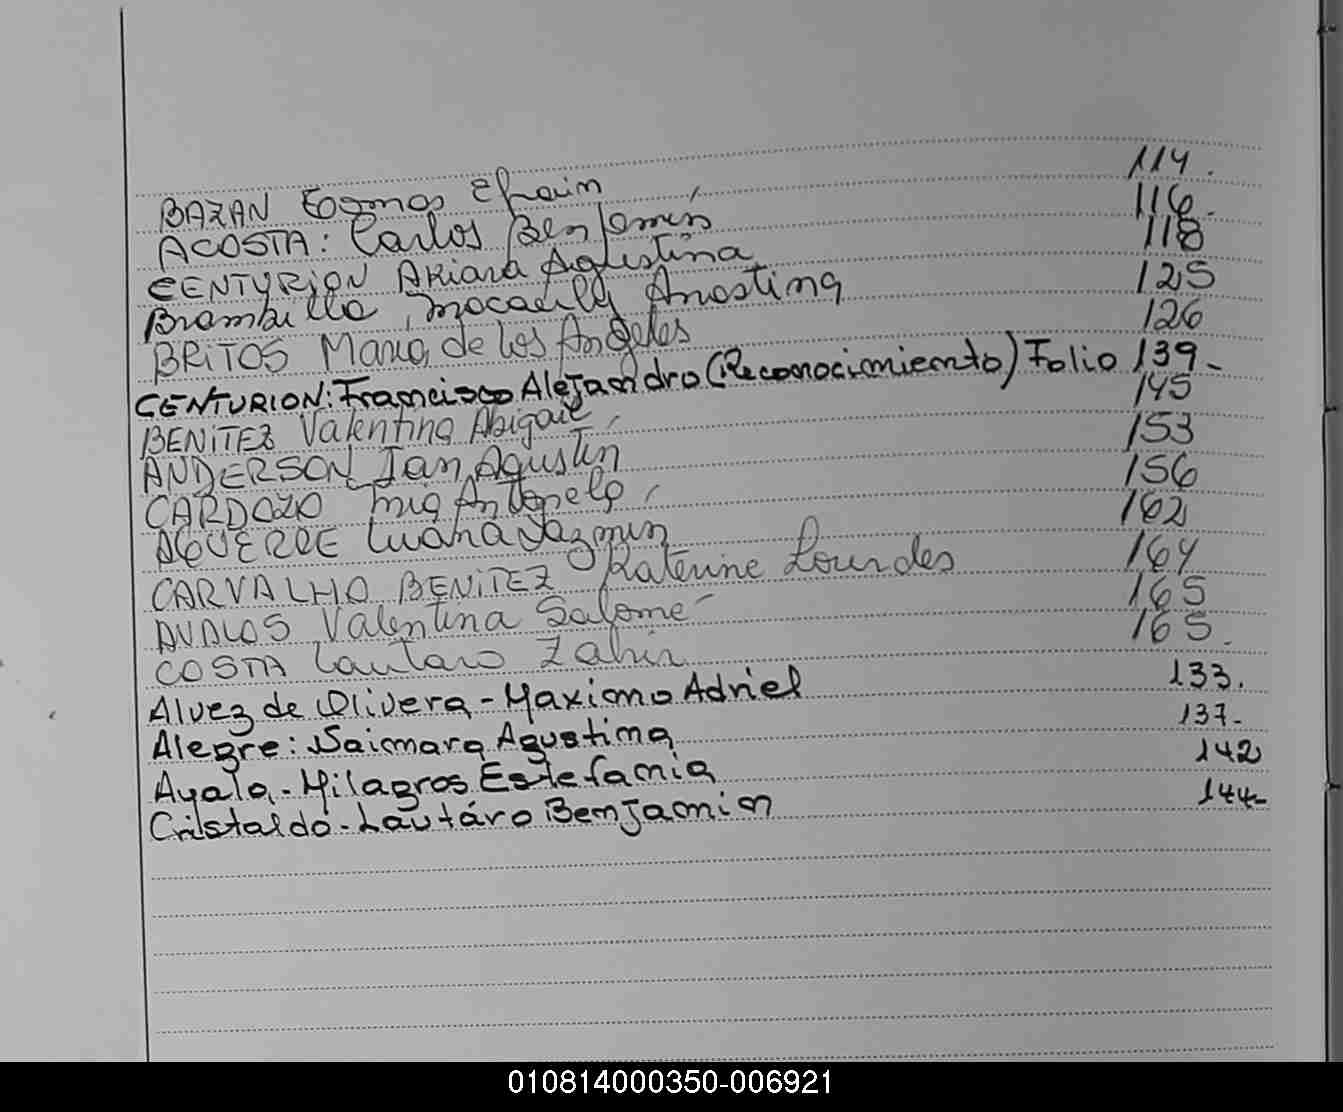 BAZAN Tomas Efrain 114.
ACOSTA: Carlos Benjamín 116.
CENTURION Ariana Agustina 118
Brambilla, Anastina 125
BRITOS Maria de los Angeles 126
CENTURION: Francisco Alejandro (Reconocimiento) Folio 139.-
BENITEZ Valentina Abigail 145
ANDERSON Ian Agustin 153
CARDOZO Mia Antonela 156
AGUERRE Luana Jazmin 162
CARVALHO BENITEZ Katerine Lourdes 164
AVALOS Valentina Salomé 165
COSTA Lautaro Zahir 165.
Alvez de Olivera - Maximo Adriel 133.
Alegre: Naimara Agustina 137-
Ayala - Milagros Estefania 142
Cristaldo - Lautáro Benjamin 144-
010814000350-006921